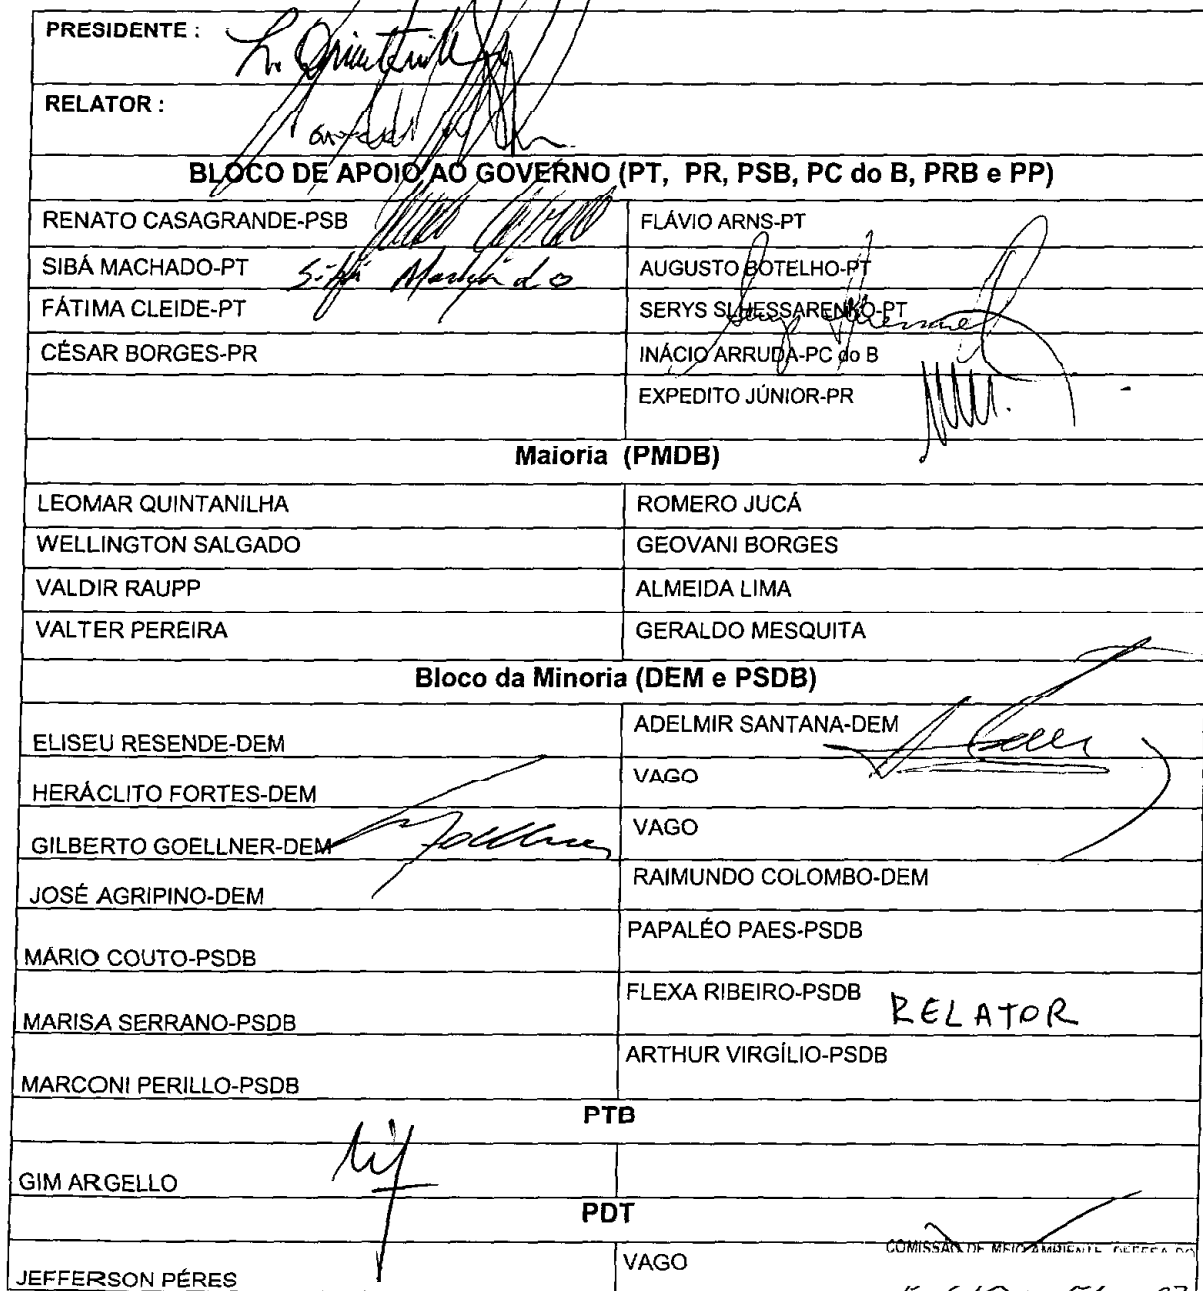 PRESIDENTE :
RELATOR :
BLOCO DE APOIO AO GOVERNO (PT, PR, PSB, PC do B, PRB e PP)
RENATO CASAGRANDE-PSB
FLÁVIO ARNS-PT
SIBÁ MACHADO-PT Sibá Machado
AUGUSTO BOTELHO-PT
FÁTIMA CLEIDE-PT
SERYS SLHESSARENKO-PT
CÉSAR BORGES-PR
INÁCIO ARRUDA-PC do B
EXPEDITO JÚNIOR-PR
Maioria (PMDB)
LEOMAR QUINTANILHA
ROMERO JUCÁ
WELLINGTON SALGADO
GEOVANI BORGES
VALDIR RAUPP
ALMEIDA LIMA
VALTER PEREIRA
GERALDO MESQUITA
Bloco da Minoria (DEM e PSDB)
ELISEU RESENDE-DEM
ADELMIR SANTANA-DEM
HERÁCLITO FORTES-DEM
VAGO
GILBERTO GOELLNER-DEM Goellner
VAGO
JOSÉ AGRIPINO-DEM
RAIMUNDO COLOMBO-DEM
MÁRIO COUTO-PSDB
PAPALÉO PAES-PSDB
MARISA SERRANO-PSDB
FLEXA RIBEIRO-PSDB RELATOR
MARCONI PERILLO-PSDB
ARTHUR VIRGÍLIO-PSDB
PTB
GIM ARGELLO
PDT
COMISSÃO DE MEIO AMBIENTE, DEFESA DO
JEFFERSON PÉRES
VAGO